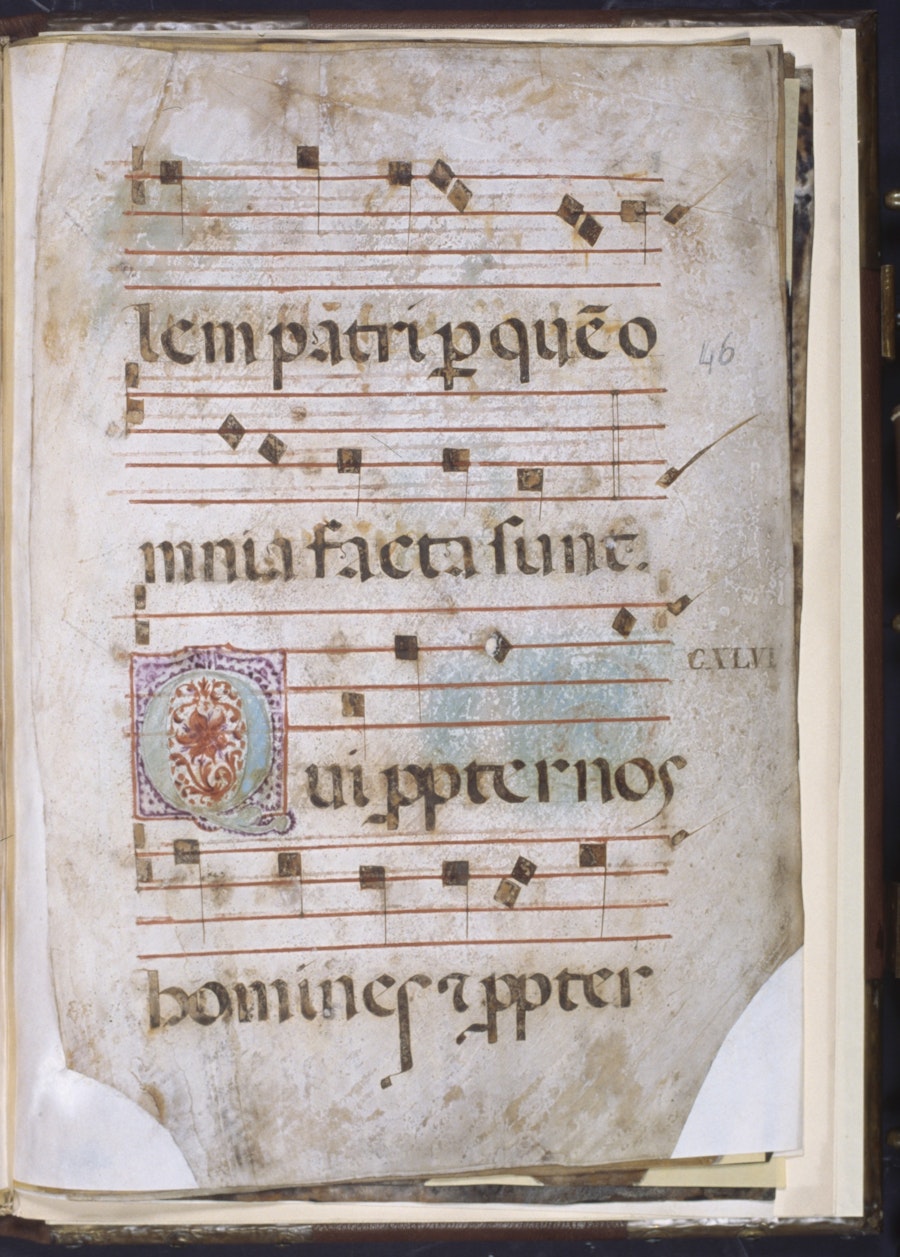 lem patri ꝑ quē o
46
mnia facta sunt.
CXLVI
Qui ꝓpter nos
homines ⁊ ꝓpter